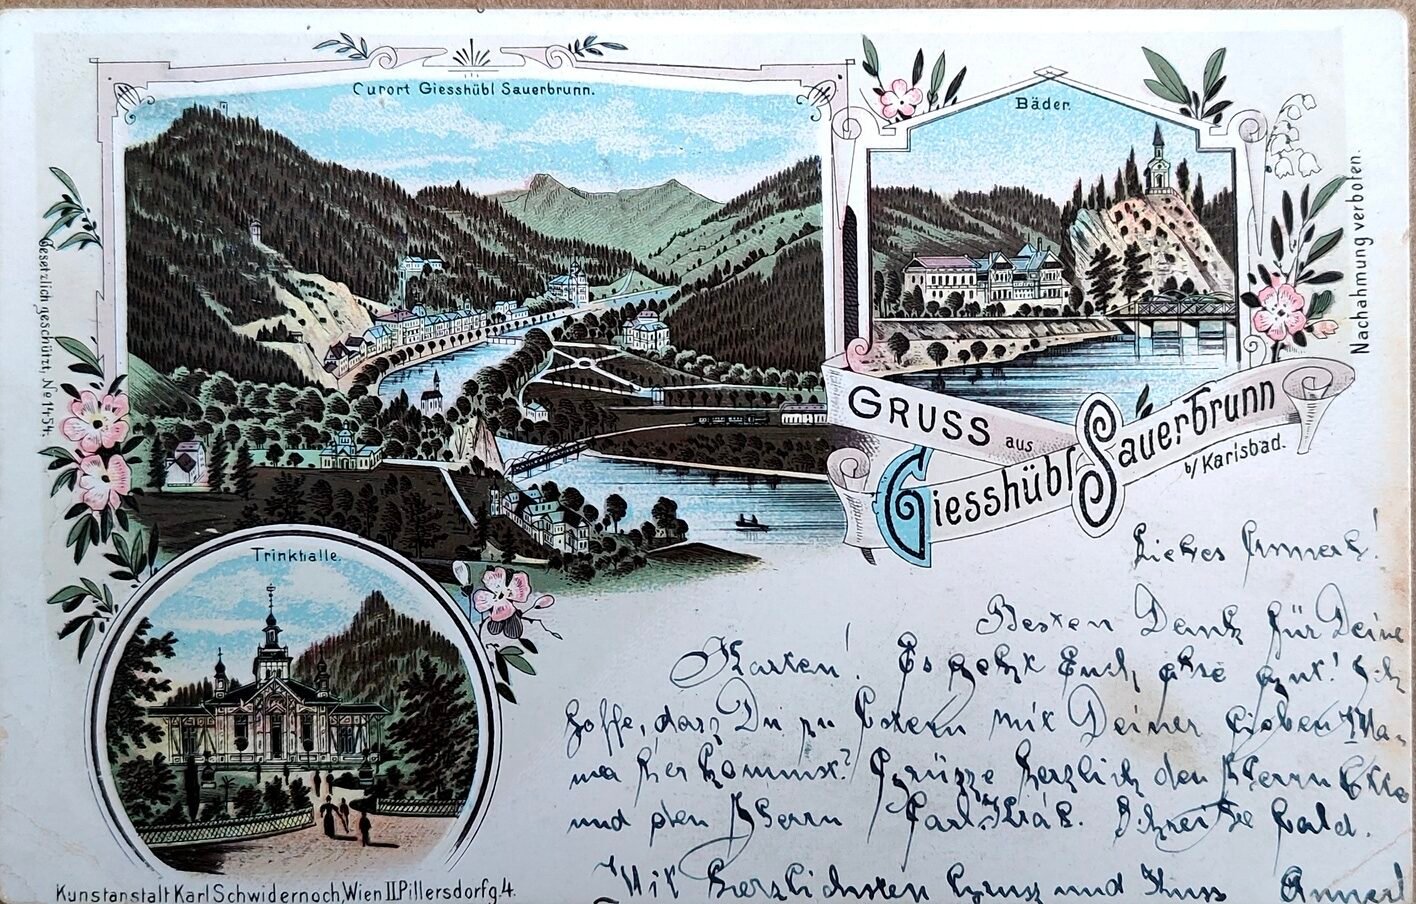 Curort Giesshübl Sauerbrunn.
Bäder
Gesetzlich geschützt, No 1454.
Nachahmung verboten.
GRUSS aus
Giesshübl Sauerbrunn
b/ Karlsbad.
Trinkhalle.
Liebes Annerl!
Besten Dank für Deine
Karten! Es geht Euch also gut! Ich
hoffe, dass Du zu Ostern mit Deiner lieben Ma-
ma her kommst? Grüsse herzlich den Herrn
und den Herrn Carl Schreibe bald.
Mit herzlichsten Gruss und Kuss Annerl
Kunstanstalt Karl Schwidernoch, Wien II Pillersdorfg. 4.